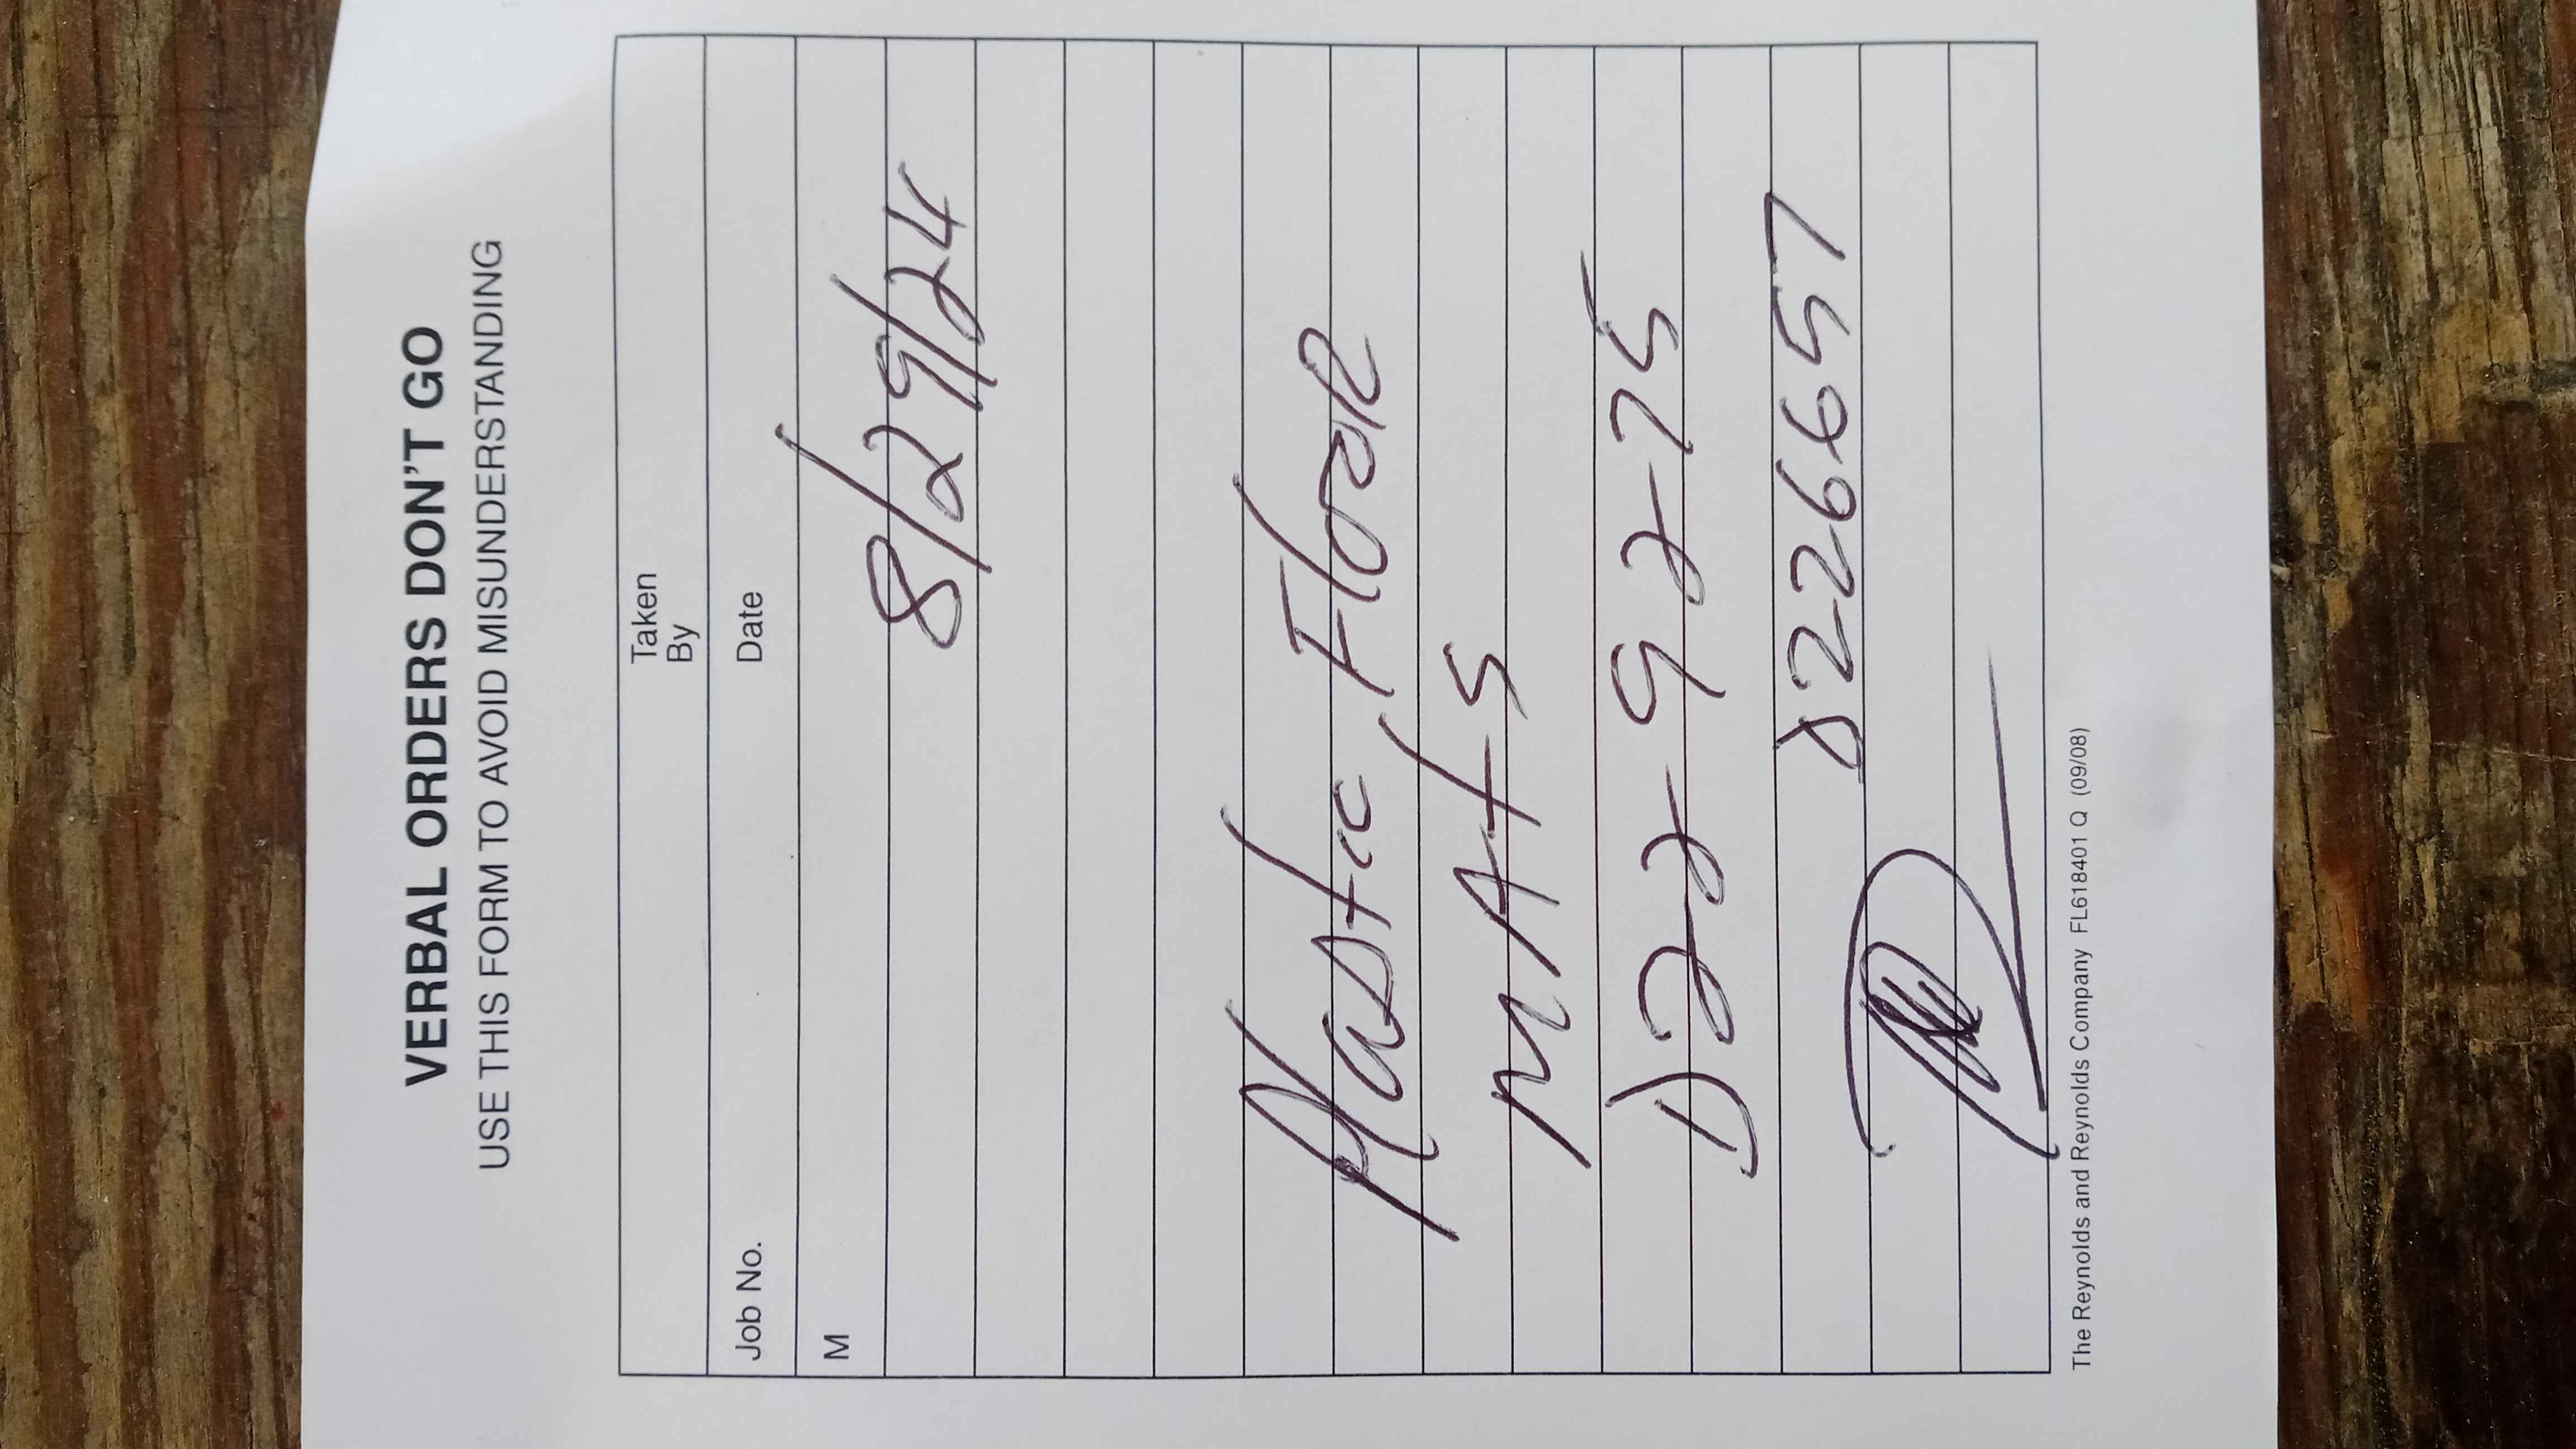 VERBAL ORDERS DON'T GO
USE THIS FORM TO AVOID MISUNDERSTANDING
Taken
By
Job No. Date
M
8/29/24
Plastic Floor
MAts
D22-92-75
D226657
The Reynolds and Reynolds Company FL618401 Q (09/08)